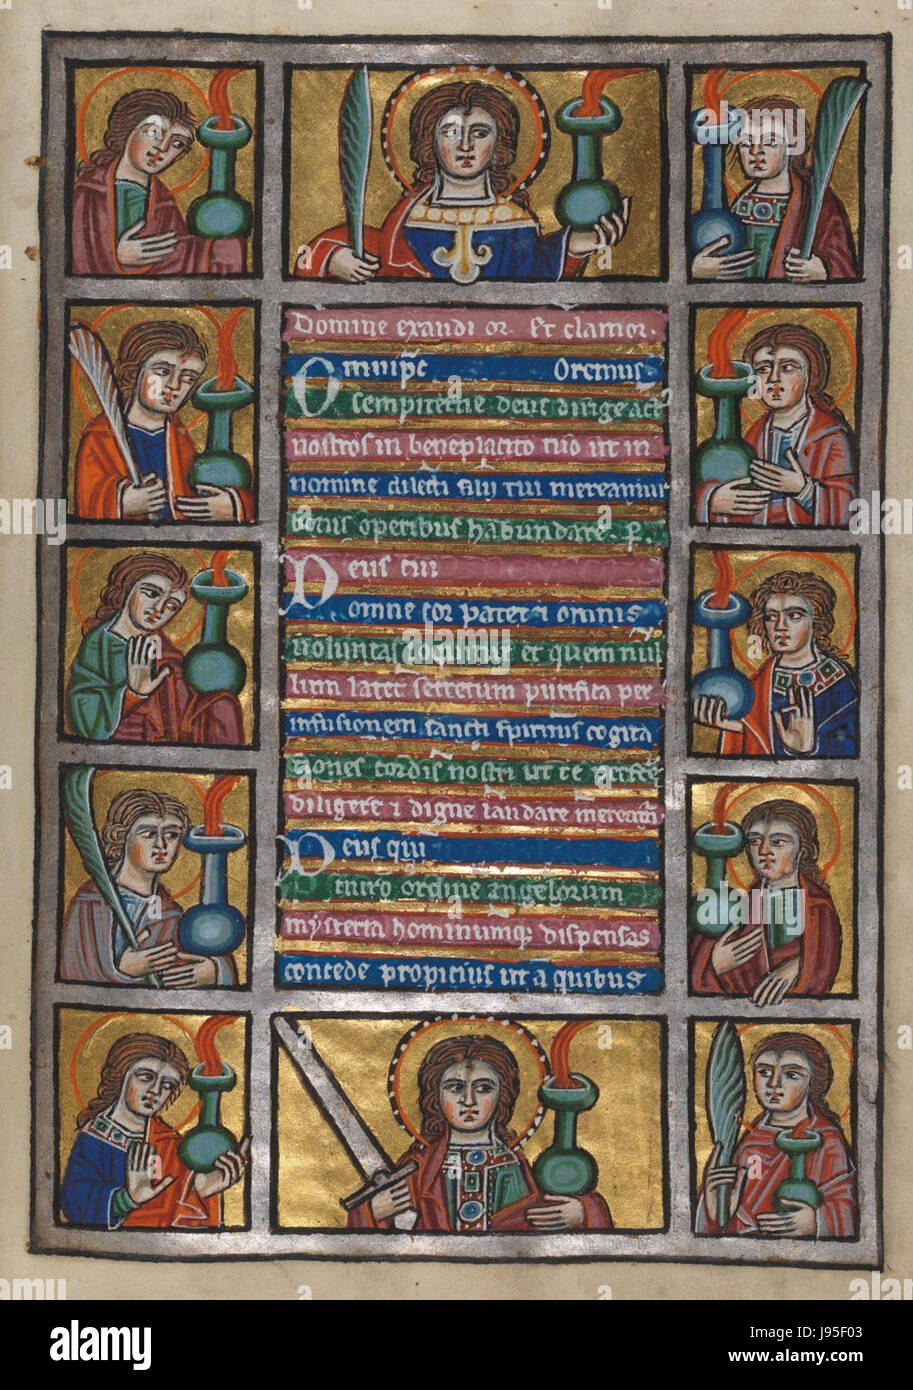 Domine exaudi or. Et clamor.
Omnipc Oremus
Sempiterne deus dirige act
nostros in beneplacito tuo ut in
nomine dilecti filij tui mereamur
bonis operibus habundare. p.
Deus cui
omne cor patet & omnis
voluntas loquitur et quem nul
lum latet secretum purifica per
infusionem sancti spiritus cogita
tiones cordis nostri ut te perfecte
diligere & digne laudare mereamr.
Deus qui
miro ordine angelorum
mysteria hominumq; dispensas
concede propicius ut a quibus
alamy
Image ID: J95F03
www.alamy.com